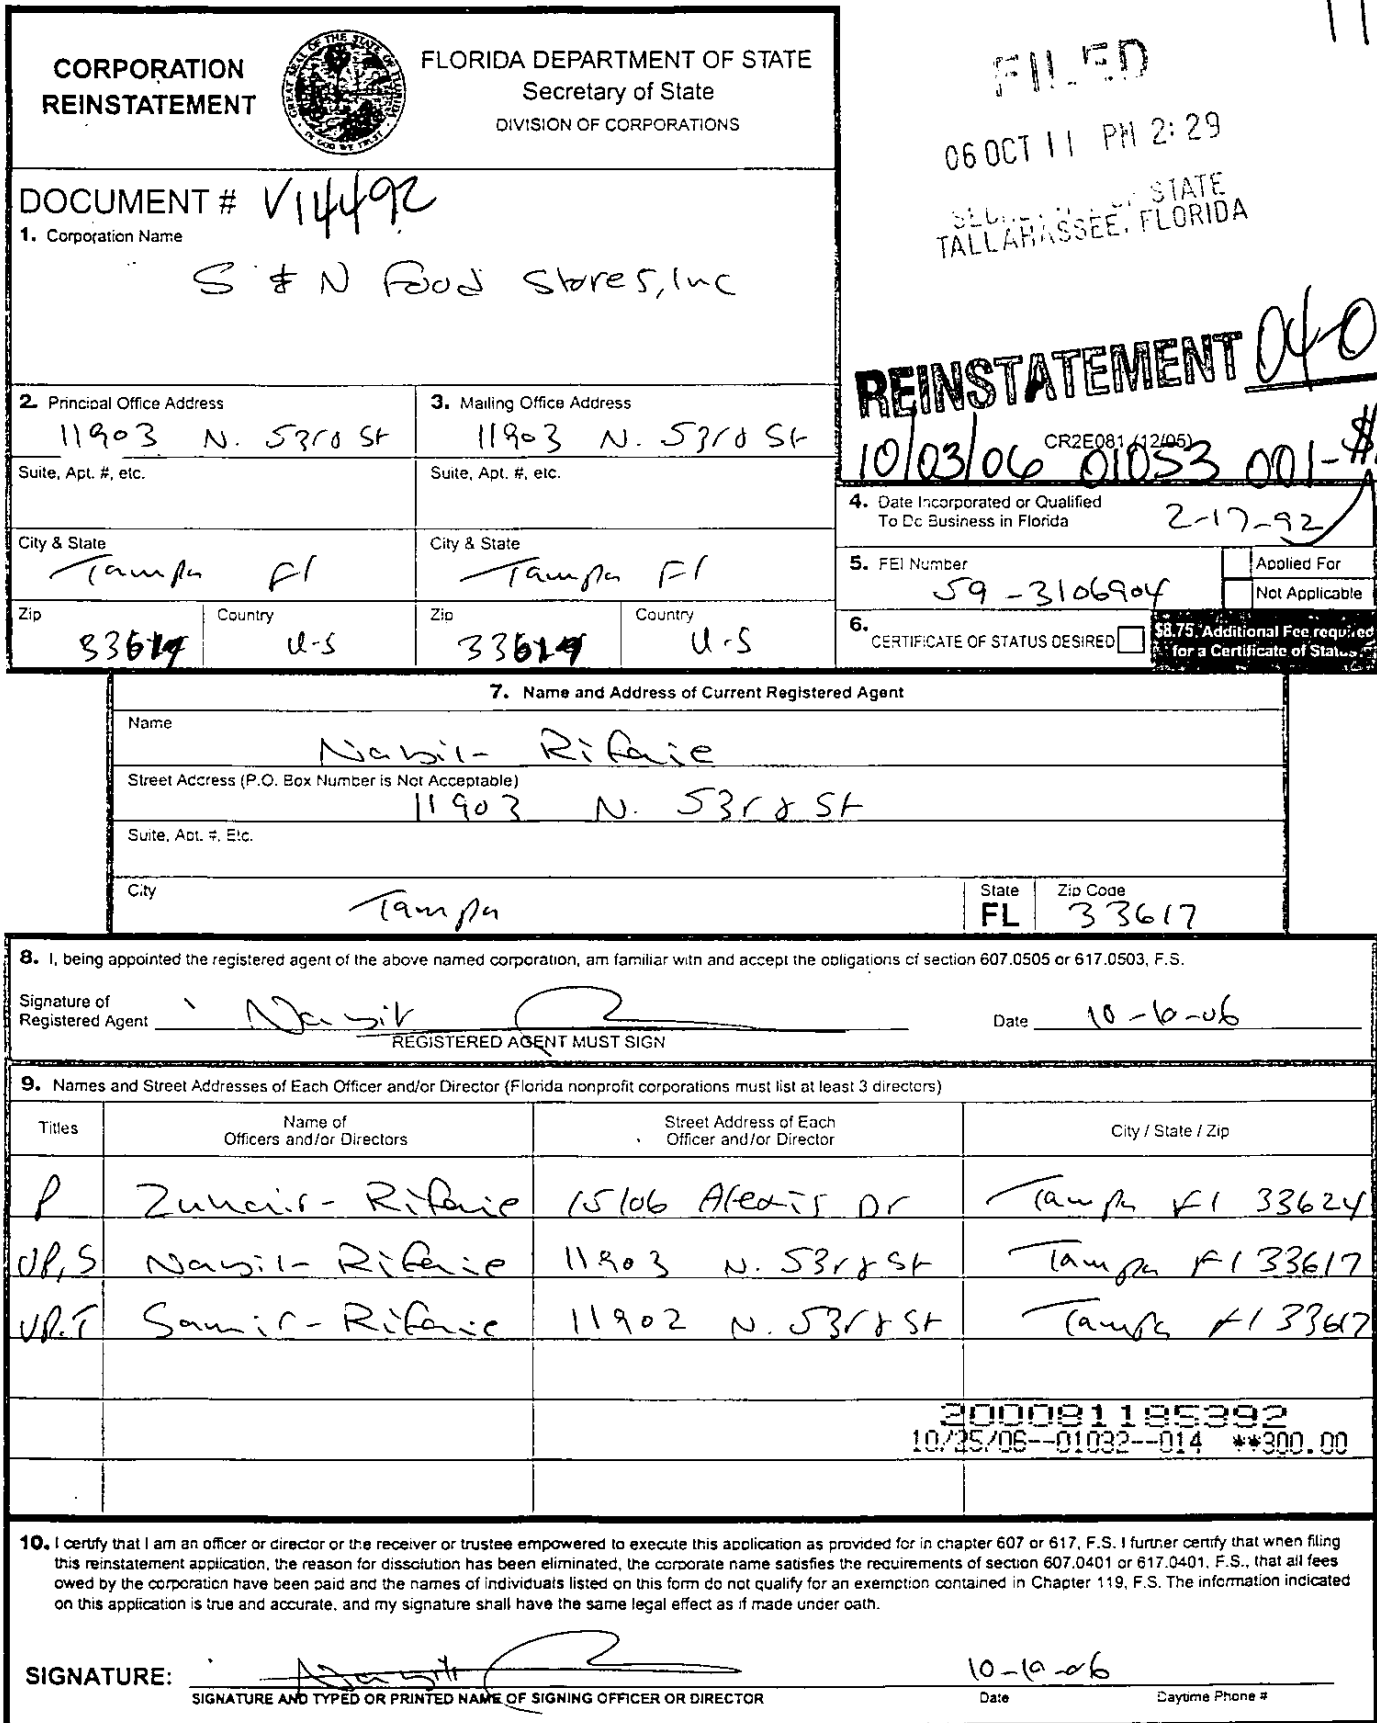 CORPORATION
REINSTATEMENT
GREAT SEAL OF THE STATE OF FLORIDA
IN GOD WE TRUST
FLORIDA DEPARTMENT OF STATE
Secretary of State
DIVISION OF CORPORATIONS
FILED
06 OCT 11 PM 2:29
SECRETARY OF STATE
TALLAHASSEE, FLORIDA
DOCUMENT # V14492
1. Corporation Name
S & N Food Stores, Inc
REINSTATEMENT 04-0
CR2E081 (12/05)
10/03/06 01053 001-$
2. Principal Office Address
11903 N. 53rd St
3. Mailing Office Address
11903 N. 53rd St
Suite, Apt. #, etc.
Suite, Apt. #, etc.
4. Date Incorporated or Qualified
To Do Business in Florida
2-17-92
City & State
Tampa Fl
City & State
Tampa Fl
5. FEI Number
59-3106904
Applied For
Not Applicable
Zip
33617
Country
U-S
Zip
33617
Country
U-S
6.
CERTIFICATE OF STATUS DESIRED
$8.75. Additional Fee required
for a Certificate of Status
7. Name and Address of Current Registered Agent
Name
Nabil- Rifaie
Street Address (P.O. Box Number is Not Acceptable)
11903 N. 53rd St
Suite, Apt. #, Etc.
City
Tampa
State
FL
Zip Code
33617
8. I, being appointed the registered agent of the above named corporation, am familiar with and accept the obligations of section 607.0505 or 617.0503, F.S.
Signature of
Registered Agent
Nabil
Date
REGISTERED AGENT MUST SIGN
9. Names and Street Addresses of Each Officer and/or Director (Florida nonprofit corporations must list at least 3 directors)
Titles
Name of
Officers and/or Directors
Street Address of Each
Officer and/or Director
City / State / Zip
P Zuhair- Rifaie 15106 Alexis Dr Tampa Fl 33624
VP,S Nabil- Rifaie 11903 N. 53rd St Tampa Fl 33617
VP.T Samir- Rifaie 11902 N. 53rd St Tampa Fl 33617
200081185392
10/25/06--01032--014 **300.00
10. I certify that I am an officer or director or the receiver or trustee empowered to execute this application as provided for in chapter 607 or 617, F.S. I further certify that when filing
this reinstatement application, the reason for dissolution has been eliminated, the corporate name satisfies the requirements of section 607.0401 or 617.0401, F.S., that all fees
owed by the corporation have been paid and the names of individuals listed on this form do not qualify for an exemption contained in Chapter 119, F.S. The information indicated
on this application is true and accurate, and my signature shall have the same legal effect as if made under oath.
SIGNATURE:
Nabil
SIGNATURE AND TYPED OR PRINTED NAME OF SIGNING OFFICER OR DIRECTOR
Date
Daytime Phone #